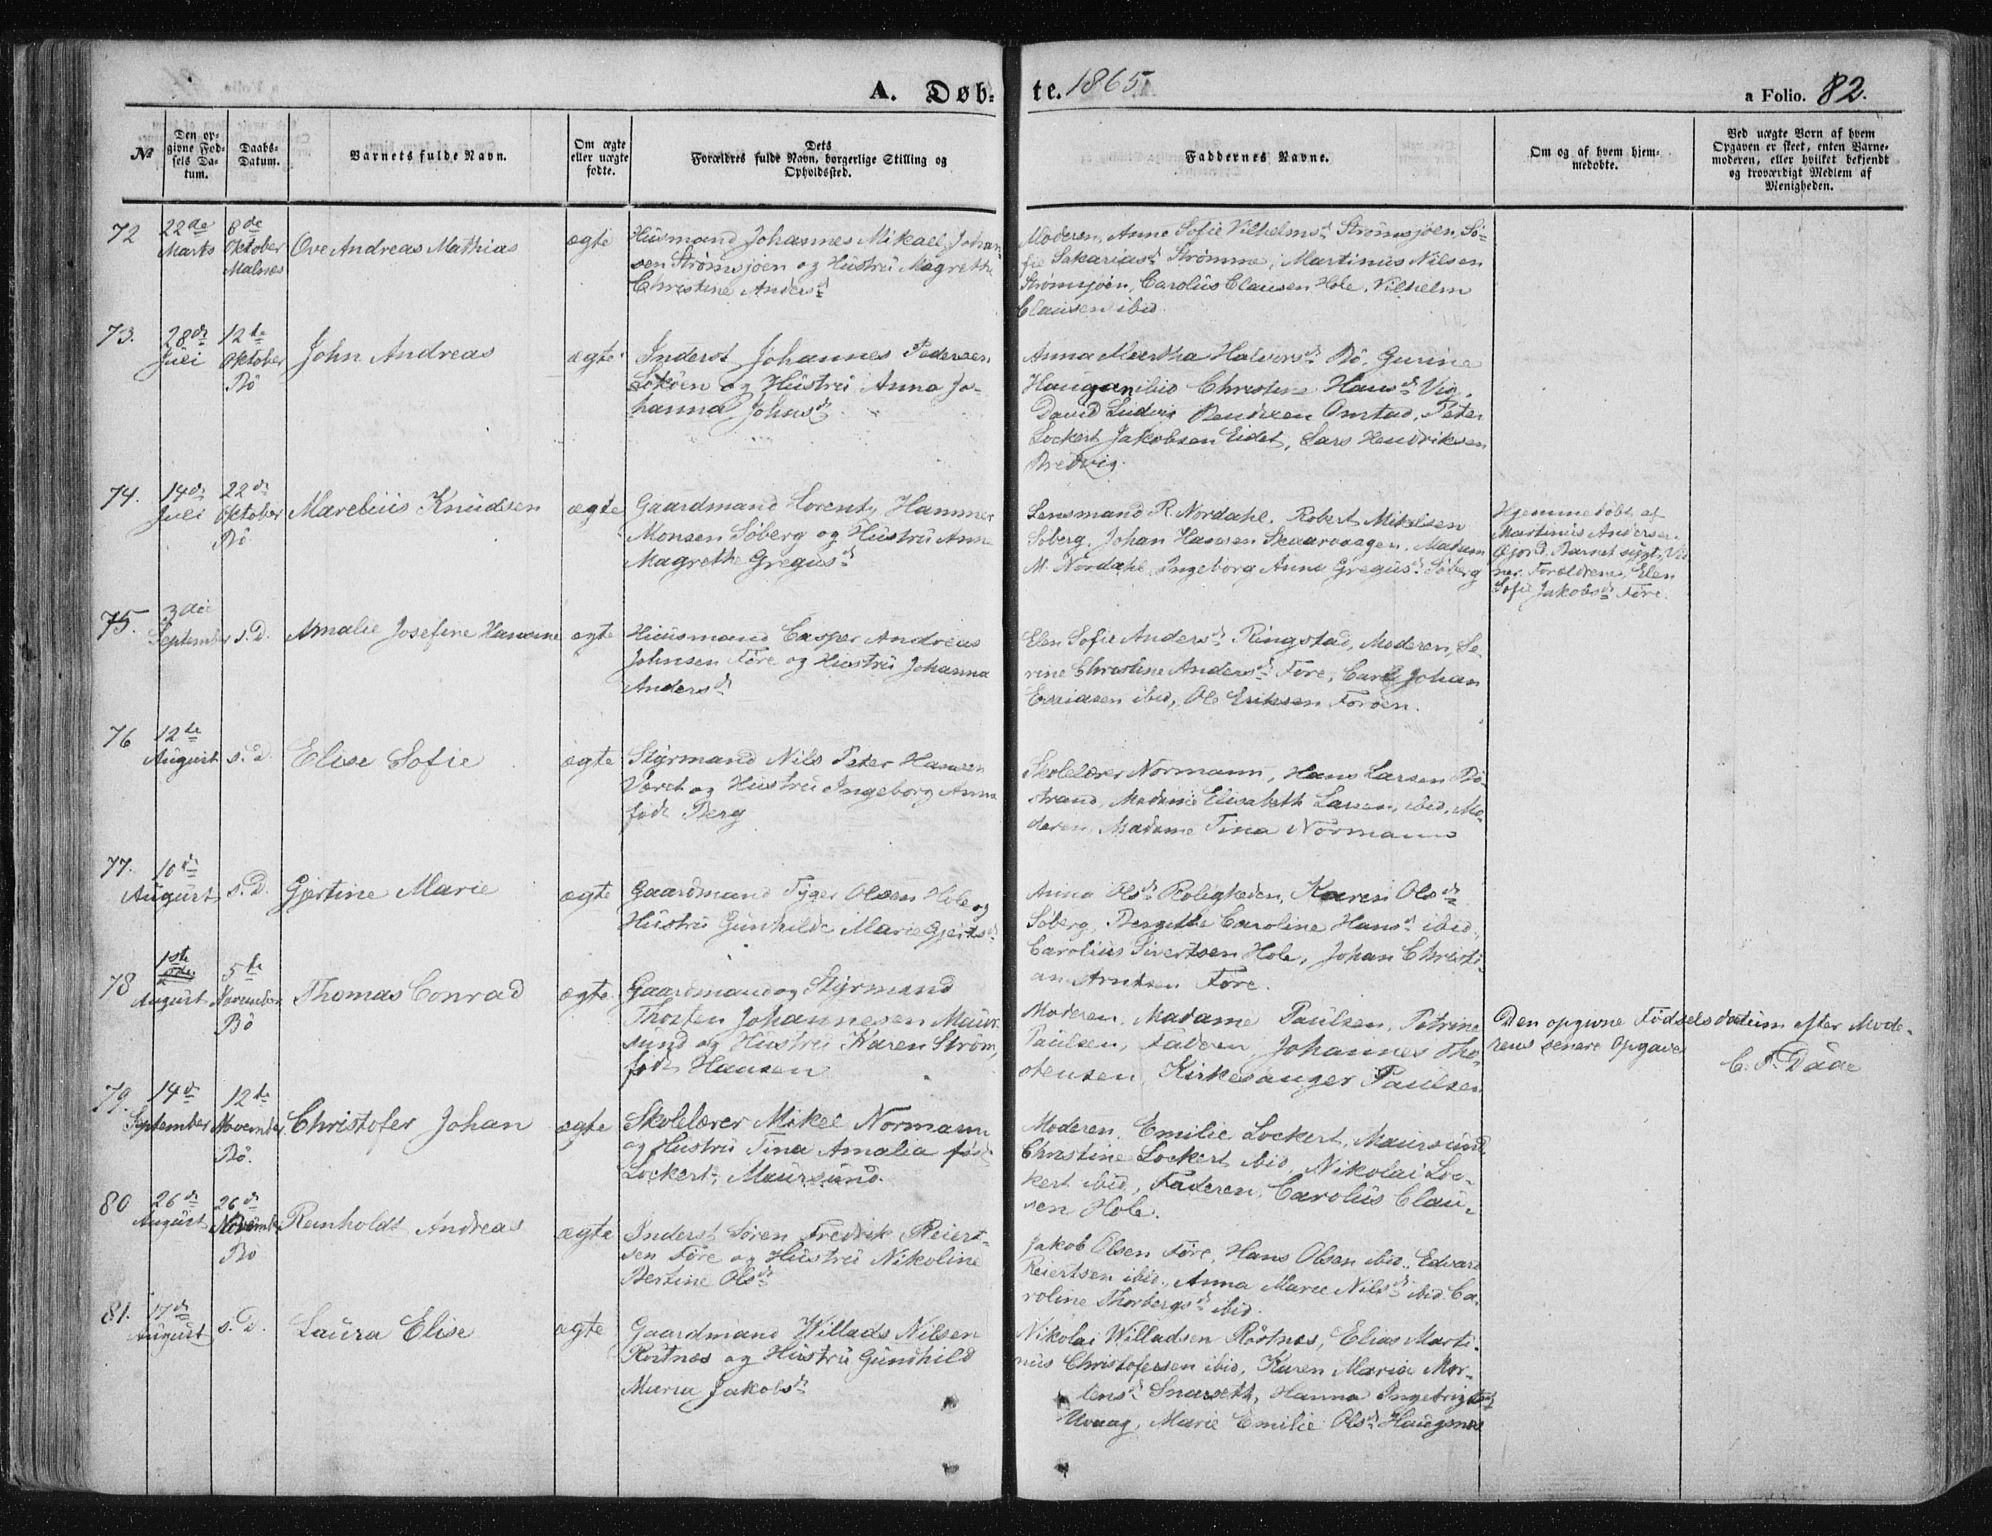 A. Døb- te. 1865. a Folio. 82.
№
Den op-
givne Fød-
sels Da-
tum.
Daabs-
Datum.
Barnets fulde Navn.
Om ægte
eller uægte
fødte.
Dets
Forældres fulde Navn, borgerlige Stilling og
Opholdssted.
Faddernes Navne.
Om og af hvem hjem-
medøbte.
Ved uægte Børn af hvem
Opgaven er skeet, enten Barne-
moderen, eller hvilket bekjendt
og troværdigt Medlem af
Menigheden.
72
22de
Marts
8de
Oktober
Malnes
Ove Andreas Mathias
ægte
Husmand Johannes Mikael Johan-
sen Strømsjøen og Hustru Magrethe
Christine Andersd
Moderen, Anne Sofie Vilhelmsd Strømsjøen, So-
fie Sakariasd Strømme, Martinus Nilsen
Strømsjøen, Carolus Clausen Hole, Vilhelm
Clausen ibid
73.
28de
Juli
12te
Oktober
Bö
John Andreas
ægte
Inderst Johannes Pedersen
og Hustru Anna Jo-
hanna Johnsd
Anna Martha Halvorsd Bö, Gurine
Haugan ibid Christine Hansd Vig,
David Ludvig Bendixen Omtad, Peter
Lockert Jakobsen Eidet, Lars Hendriksen
Bredvig.
74.
14de
Juli
22de
Oktober
Bö
Marelius Knudsen
ægte
Gaardmand Lorents Hammer
Monsen Söberg og Hustru Anne
Magrethe Gregusd
Lensmand R. Nordahl, Robert Mikelsen
Söberg, Johan Hansen Skaarvaagen, Madam
M. Nordahl, Ingeborg Anna Gregusd Söberg
Hjemmedöbt af
Martinus Andersen
Barnet sygt,
Forældrene, Elen
Sofie Jakobsd Före.
75.
3die
September
s. D.
Amalie Josefine Hansine
ægte
Husmand Casper Andreas
Johnsen Före og Hustru Johanna
Andersd
Elen Sofie Andersd Ringstad, Moderen, Se-
rine Christine Andersd Före, Carl Johan
ibid, Ole Eriksen Föröen.
76
12te
August
s. D.
Elise Sofie
ægte
Styrmand Nils Peter Hansen
Været og Hustru Ingeborg Anna
föd Berg
Skolelærer Normann, Hans Larsen Bö-
strand, Madame Elisabeth Larsen, ibid, Mo-
deren, Madame Tina Normann
77.
10de
August
s. D.
Gjertine Marie
ægte
Gaardmand Tyger Olsen Hole og
Hustru Gunhilde Marie Gjertsd
Anna Olsd Roligheden, Karen Olsd
Söberg, Bergitte Caroline Hansd ibid,
Carolius Sivertsen Hole, Johan Christi-
an Arntsen Före.
78
1ste
August
5te
November
Bö
Thomas Conrad
ægte
Gaardmand og Styrmand
Thosten Johannesen Maur-
sund og Hustru Karen Ström,
föd Hansen
Moderen, Madame Paulsen, Petrine
Paulsen, Faderen, Johannes Tho-
stensen, Kirkesanger Paulsen
Den opgivne Födselsdatum efter Mode-
rens senere Opgave
C. F. Daae
79.
14de
September
12te
November
Bö.
Christofer Johan
ægte
Skolelærer Mikel Normann
og Hustru Tina Amalia föd
Lockert, Maursund.
Moderen, Emilie Lockert, Maursund
Christine Lockert ibid, Nikolai Loc-
kert ibid, Faderen, Carolus Clau-
sen Hole.
80
26de
August
26de
November
Bö
Reinholdt Andreas
ægte
Inderst Sören Fredrik Reiert-
sen Före og Hustru Nikoline
Bertine Olsd
Jakob Olsen Före, Hans Olsen ibid, Edvard
Reiertsen ibid, Anna Marie Nilsd ibid. Ca-
roline Thorbergsd ibid.
81.
17de
August
s. D.
Laura Elise
ægte
Gaardmand Willads Nilsen
Röstnes og Hustru Gundhild
Maria Jakobsd
Nikolai Willadsen Röstnes, Elias Marti-
nus Christofersen ibid, Karen Maria Mor-
tensd Snarseth, Hanna
Uvaag, Marie Emilie Olsd Haugsnes